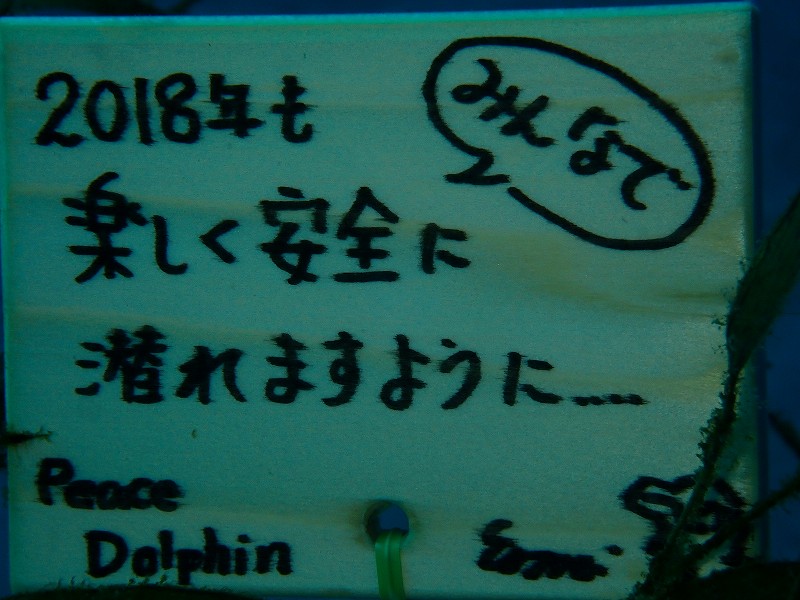 2018年も
みんなで
楽しく安全に
潜れますように……
Peace
Dolphin